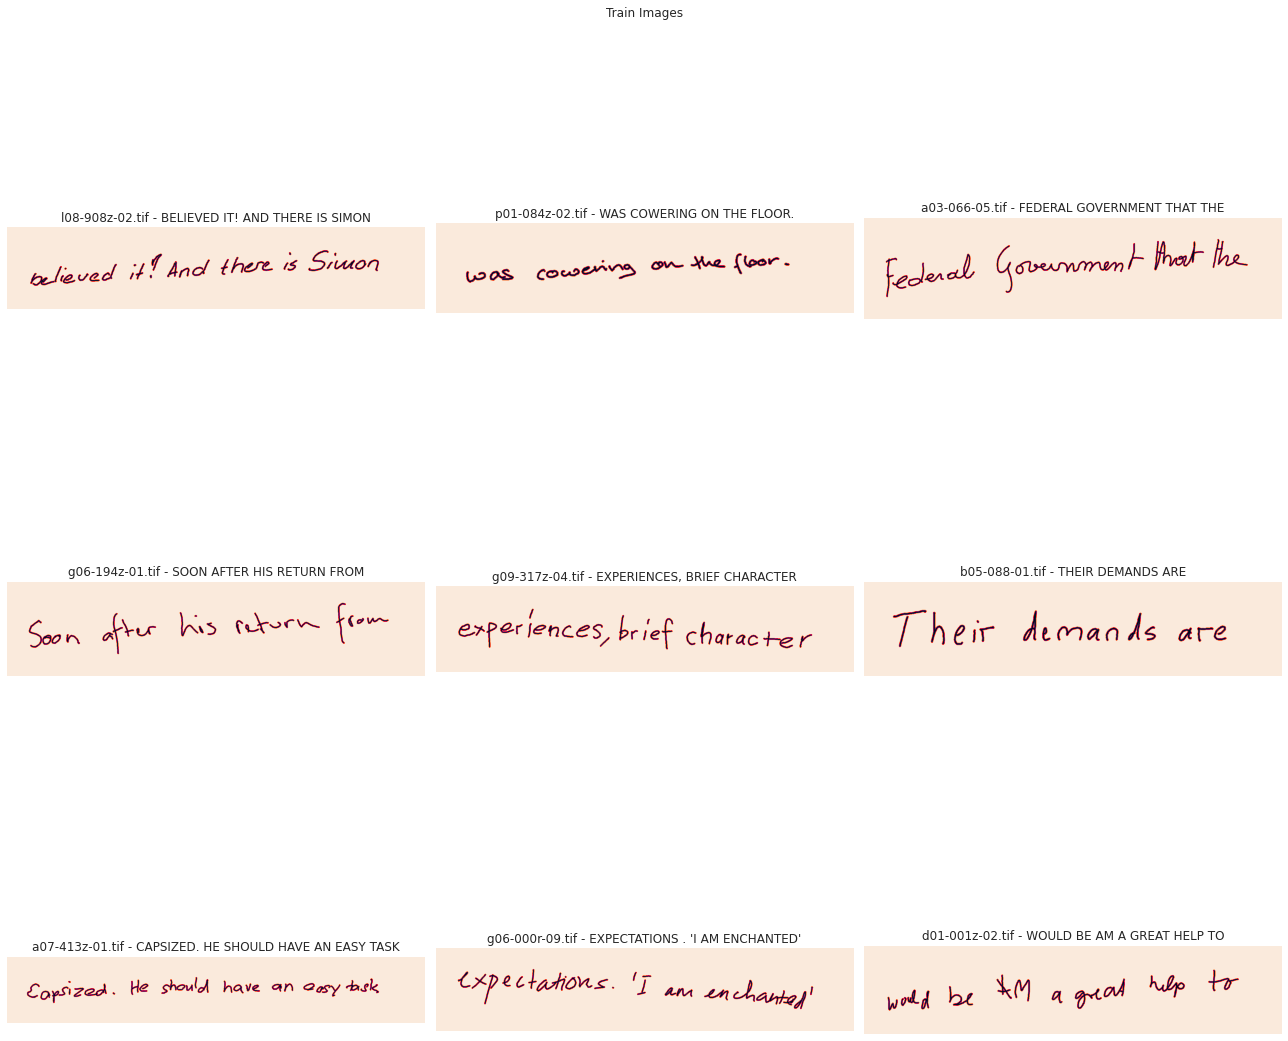 Train Images
l08-908z-02.tif - BELIEVED IT! AND THERE IS SIMON
believed it! And there is Simon
p01-084z-02.tif - WAS COWERING ON THE FLOOR.
was cowering on the floor.
a03-066-05.tif - FEDERAL GOVERNMENT THAT THE
Federal Government that the
g06-194z-01.tif - SOON AFTER HIS RETURN FROM
Soon after his return from
g09-317z-04.tif - EXPERIENCES, BRIEF CHARACTER
experiences, brief character
b05-088-01.tif - THEIR DEMANDS ARE
Their demands are
a07-413z-01.tif - CAPSIZED. HE SHOULD HAVE AN EASY TASK
Capsized. He should have an easy task
g06-000r-09.tif - EXPECTATIONS . 'I AM ENCHANTED'
expectations. 'I am enchanted'
d01-001z-02.tif - WOULD BE AM A GREAT HELP TO
would be AM a great help to